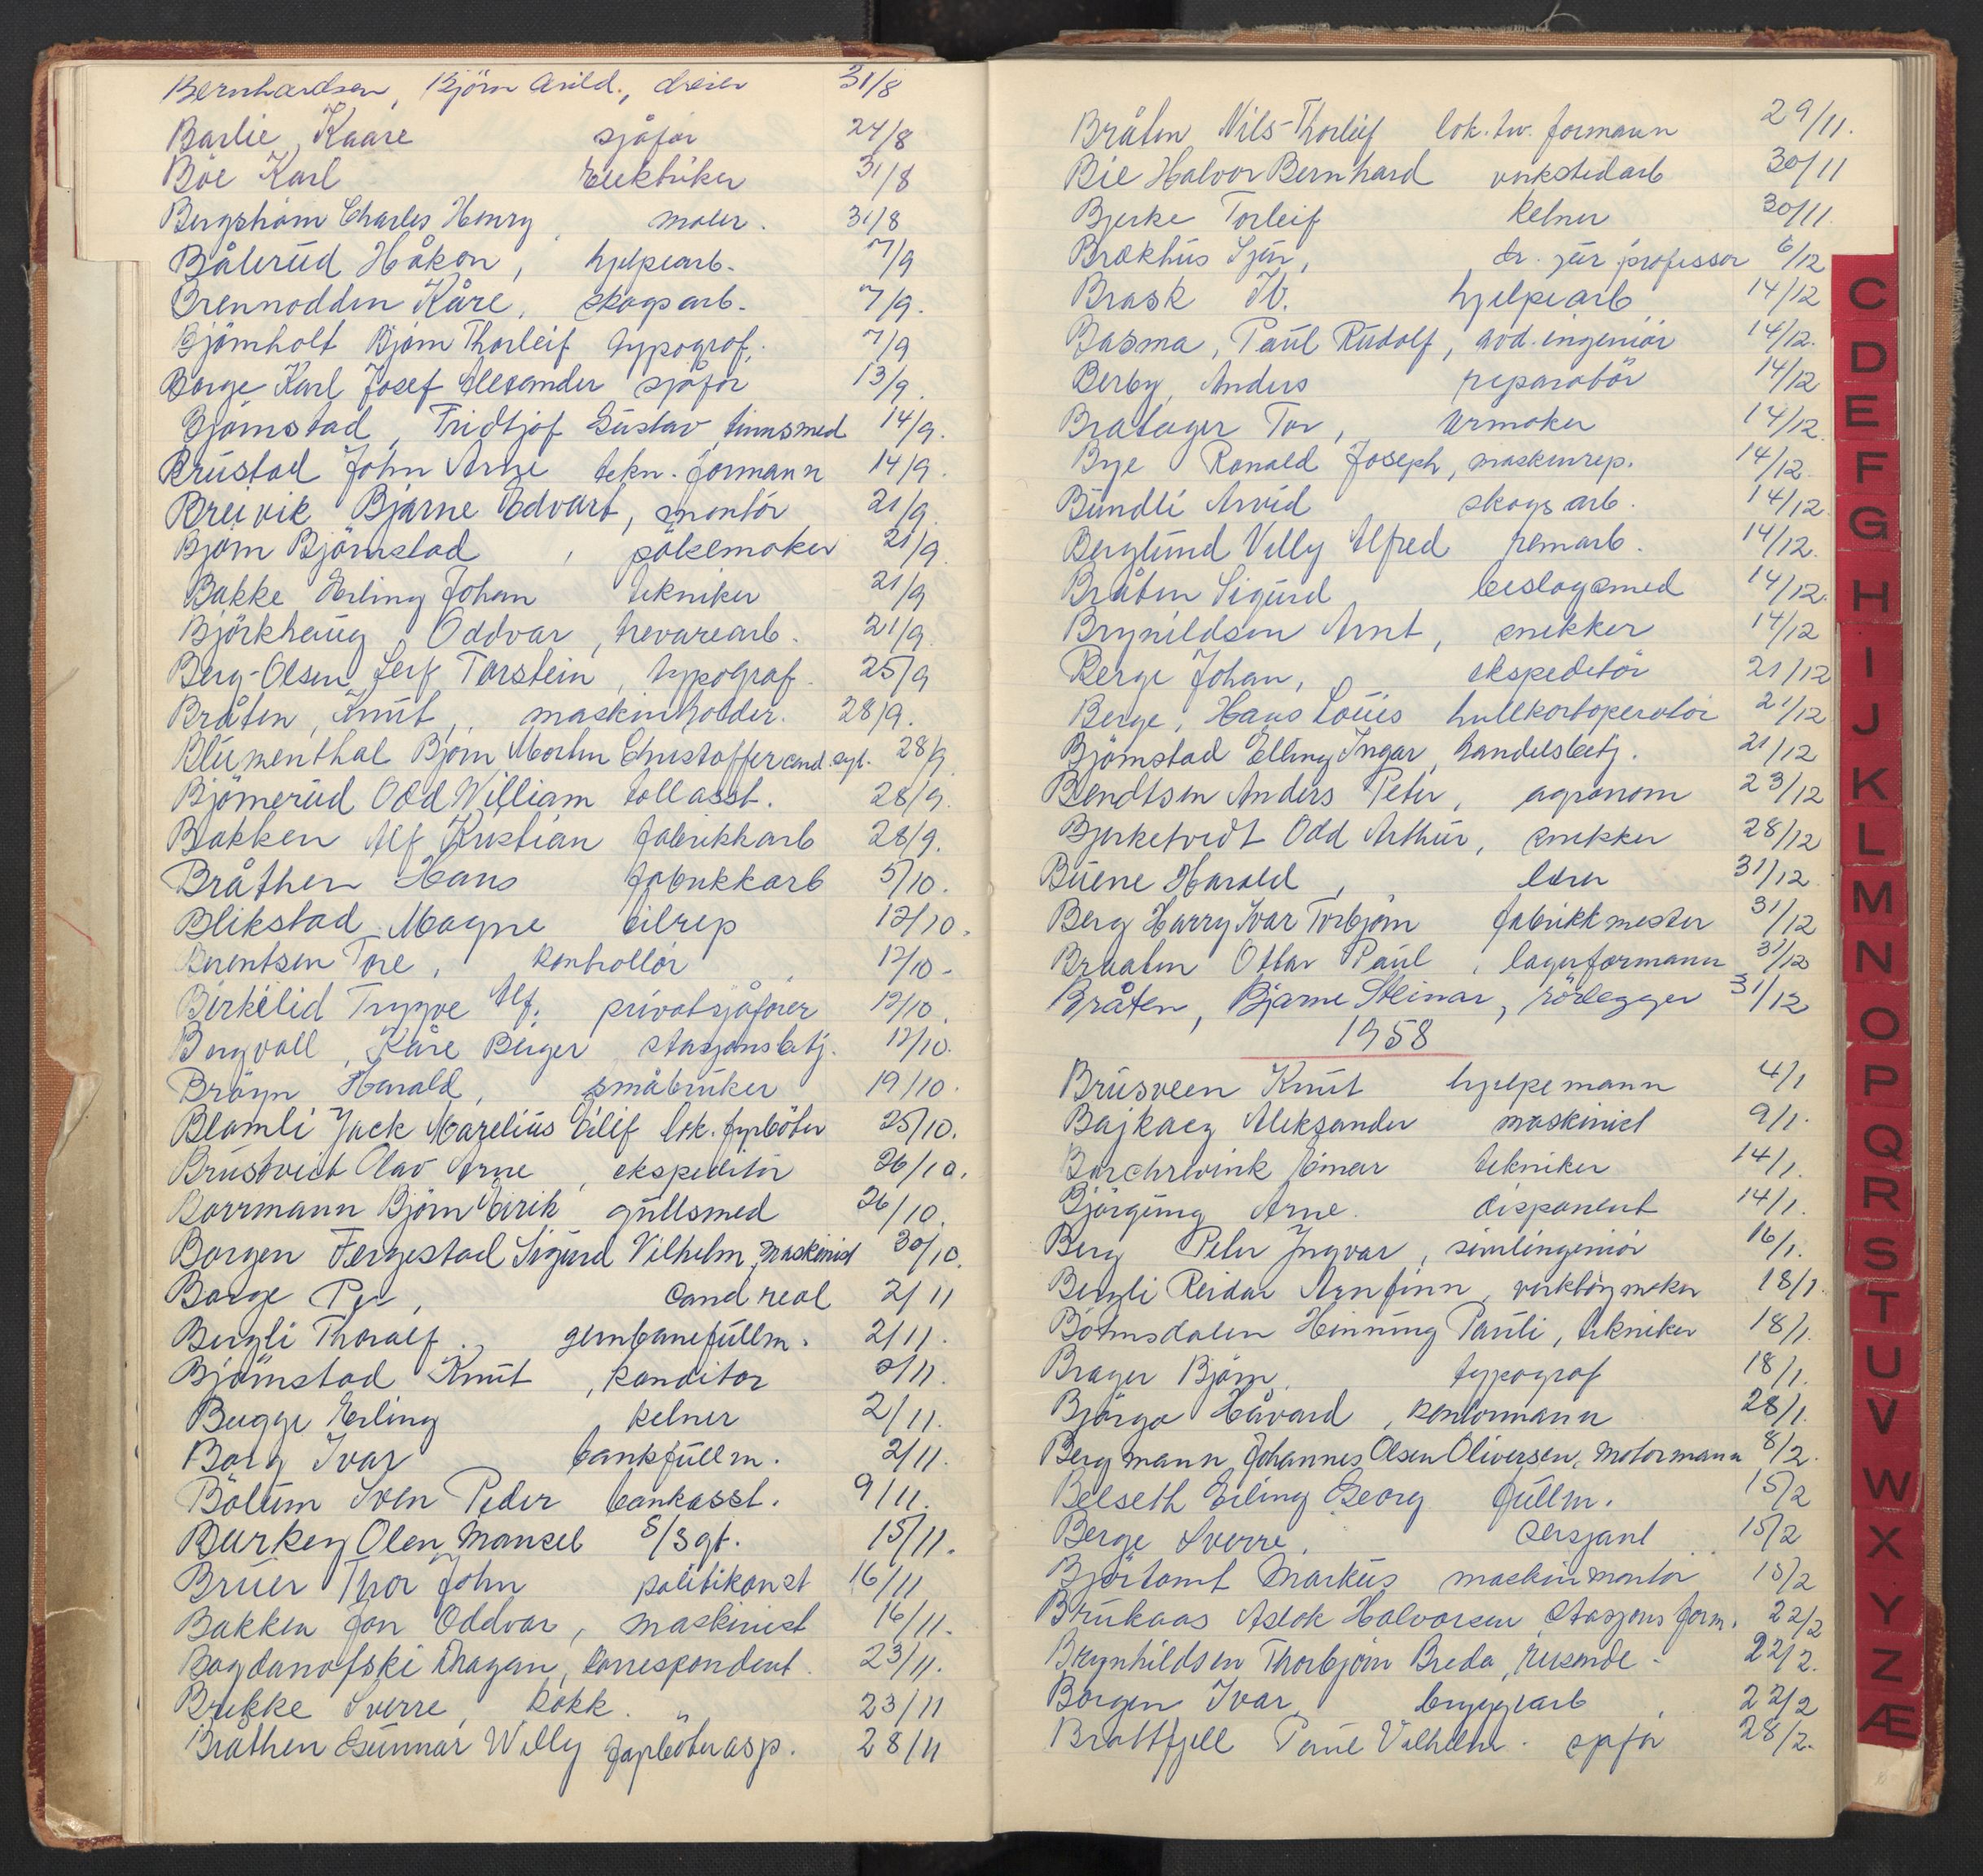 Bernhardsen, Björn Arild., dreier 31/8
Barlie, Kaare sjåfør 24/8
Böe Karl Elektriker 31/8
Bergström Charles Henry, maler. 31/8
Bålerud Håkon, hjelpearb. 7/9
Brennodden Kåre, skogsarb. 7/9.
Björnholt Björn Thorleif typograf. 7/9
Borge Karl Josef Alexander sjåför 13/9.
Björnstad, Fridtjof Gustav, tinnsmed 14/9.
Brustad John Arne tekn. formann 14/9.
Breivik Bjarne Edvart, montör 21/9
Björn Björnstad, pölsemaker 21/9
Bakke Erling Johan tekniker 21/9
Björkhaug, Oddvar, trevarearb. 21/9
Berg-Olsen Leif Torstein, typograf. 25/9
Bråten, Knut, maskinholder. 28/9.
Blumenthal Björn Morten Christoffer cand. 28/9
Björnerud Odd William tollasst. 28/9.
Bakken Alf Kristian fabrikkarb 28/9.
Bråthen Hans fabrikkarb 5/10.
Blikstad Magne bilrep 12/10.
Berentsen Tore, kontrollör 12/10.
Birkelid Trygve Alf. privatsjåförer 12/10.
Bergvall, Kåre Birger stasjonsbetj. 12/10.
Bröyn Harald, småbruker 19/10.
Blomli Jack Marelius Eilif lok. fyrböter 25/10.
Brustveit Olav Arne, ekspeditör 26/10.
Borrmann Björn Eirik gullsmed 26/10.
Borgen Fergestad Sigurd Vilhelm, maskinist 30/10.
Borge Per, Cand real 2/11
Bergli Thoralf, jernbanefullm. 2/11.
Björnstad Knut, konditor 2/11.
Bugge Erling kelner 2/11.
Borg Ivar bankfullm. 2/11.
Bölum Sven Peder bankasst. 9/11.
Burkey Olen Mansel S/Sgt. 15/11.
Bruer Thor John politikonst 16/11
Bakken Jon Oddvar, maskinist 16/11.
Bogdanofski Dragan, korrespondent. 23/11.
Brekke Sverre, kokk. " 23/11
Bråthen Gunnar Willy fyrböterasp. 28/11
Bråten Nils-Thorleif lok. tv. formann 29/11.
Bie Halvor Bernhard verkstedarb 30/11
Bjerke Torleif kelner 30/11.
Brækhus Sjur, dr. jur professor 6/12
Brask hjelpearb 14/12
Basma, Paul Rudolf, avd. ingeniör 14/12.
Berby, Anders reparatör 14/12
Bratager Tor, urmaker 14/12.
Bye Ronald Joseph, maskinrep. 14/12.
Bundli Arvid skogsarb. 14/12.
Berglund Villy Alfred remarb. 14/12.
Bråten Sigurd beslagsmed 14/12.
Brynildsen Arnt, snekker 14/12
Berge Johan, ekspeditör 21/12
Berge, Hans Louis hullkortoperatör 21/12
Björnstad Elling Ingar, handelsbetj. 21/12
Bendtsen Anders Peter, agronom 23/12
Bjerketvedt Odd Arthur, snekker 28/12
Buene Harald, lærer 31/12
Berg Harry Ivar Torbjörn fabrikkmester 31/12
Braaten Ottar Paul, lagerformann 31/12
Bråten, Bjarne Steinar, rörlegger 31/12
1958
Brusveen Knut hjelpemann 4/1
Bajkacz Aleksander maskinist 9/1.
Borchrevink Einar tekniker 14/1.
Björgung Arne. disponent 14/1.
Berg Peter Ingvar, sivilingeniör 16/1.
Bergli Reidar Arnfinn, verktöymaker 18/1.
Bömsdalen Henning Pauli, tekniker 18/1.
Brager Björn, typograf 18/1.
Björgo Håvard, kontormann 28/1.
Bergmann, Johannes Olsen Oliversen, motormann 8/2.
Belseth Erling Georg fullm. 15/2
Berge Sverre, Sersjant 15/2
Björtomt Markus maskinmontör 15/2
Brukaas Aslak Halvorsen Stasjonsform. 22/2
Brynhildsen Thorbjörn Breda, reisende. 22/2.
Borgen Ivar, bryggearb 22/2
Brattfjell Paul Vilhelm. sjåför 28/2.
C
D
E
F
G
H
I
J
K
L
M
N
O
P
Q
R
S
T
U
V
W
X
Y
Z
Æ